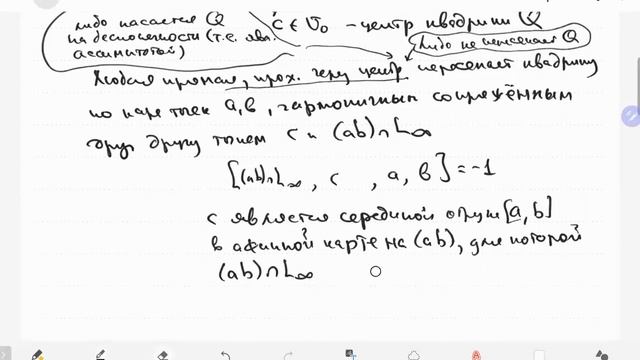 либо касается Q
на бесконечности (т.е. явл.
асимптотой)
c ∈ U₀ – центр квадрики Q
либо не пересекает Q
Любая прямая, прох. через центр пересекает квадрику
по паре точек a, b, гармонично сопряжённым
друг другу точкам c и (ab)∩L∞
[(ab)∩L∞, c, a, b] = -1
c является серединой отрезка [a, b]
в афинной карте на (ab), для которой
(ab)∩L∞